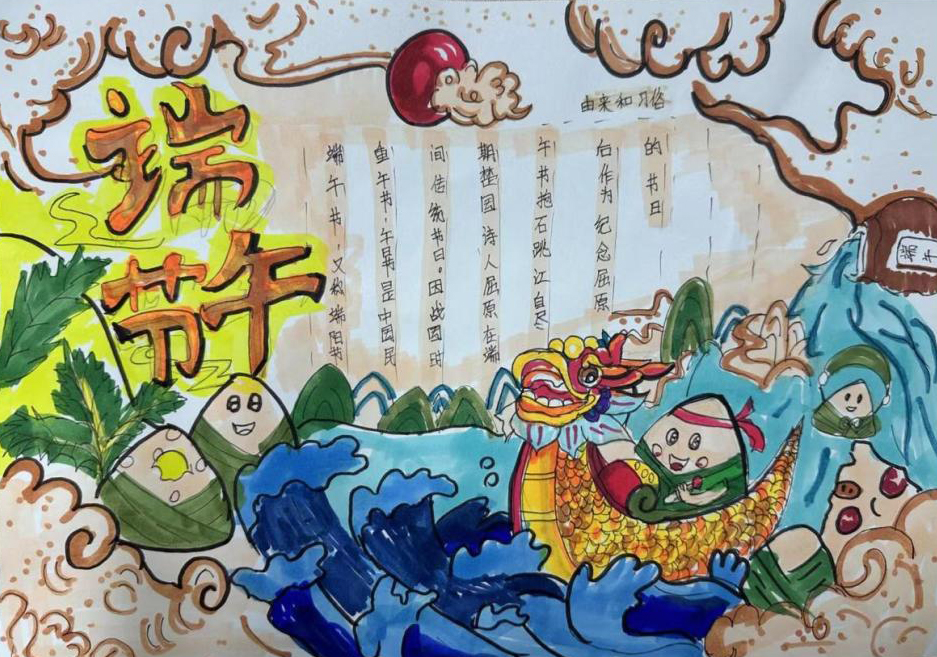 端午节
由来和习俗
端午节、又称端阳节
重午节、午日节是中国民
间传统节日。因战国时
期楚国诗人屈原在端
午节抱石跳江自尽
后作为纪念屈原
的节日
端午